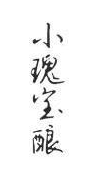 小瑰宝酿